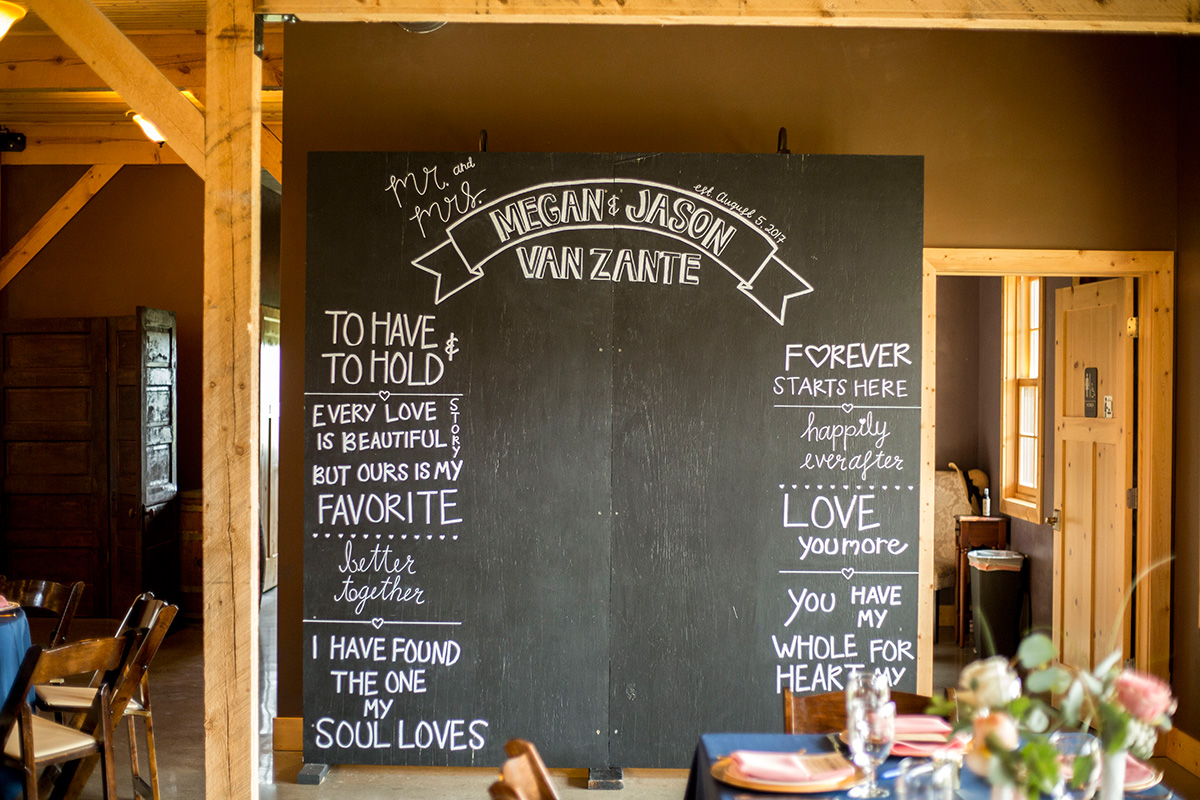 mr. and
mrs.
MEGAN & JASON
est. August 5, 2017
VAN ZANTE
TO HAVE &
TO HOLD
EVERY LOVE STORY
IS BEAUTIFUL
BUT OURS IS MY
FAVORITE
better
together
I HAVE FOUND
THE ONE
MY
SOUL LOVES
FOREVER
STARTS HERE
happily
ever after
LOVE
you more
YOU HAVE
MY
WHOLE FOR
HEART MY